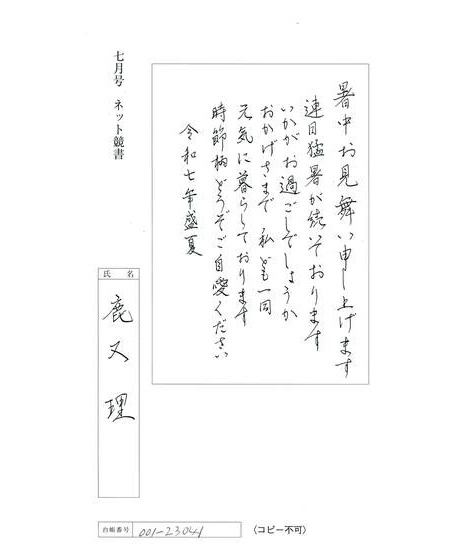 暑中お見舞い申し上げます
連日猛暑が続いております
いかがお過ごしでしょうか
おかげさまで 私ども一同
元気に暮らしております
時節柄どうぞご自愛ください
令和七年盛夏
七月号 ネット競書
氏名
鹿又 理
台帳番号 001-23041
(コピー不可)